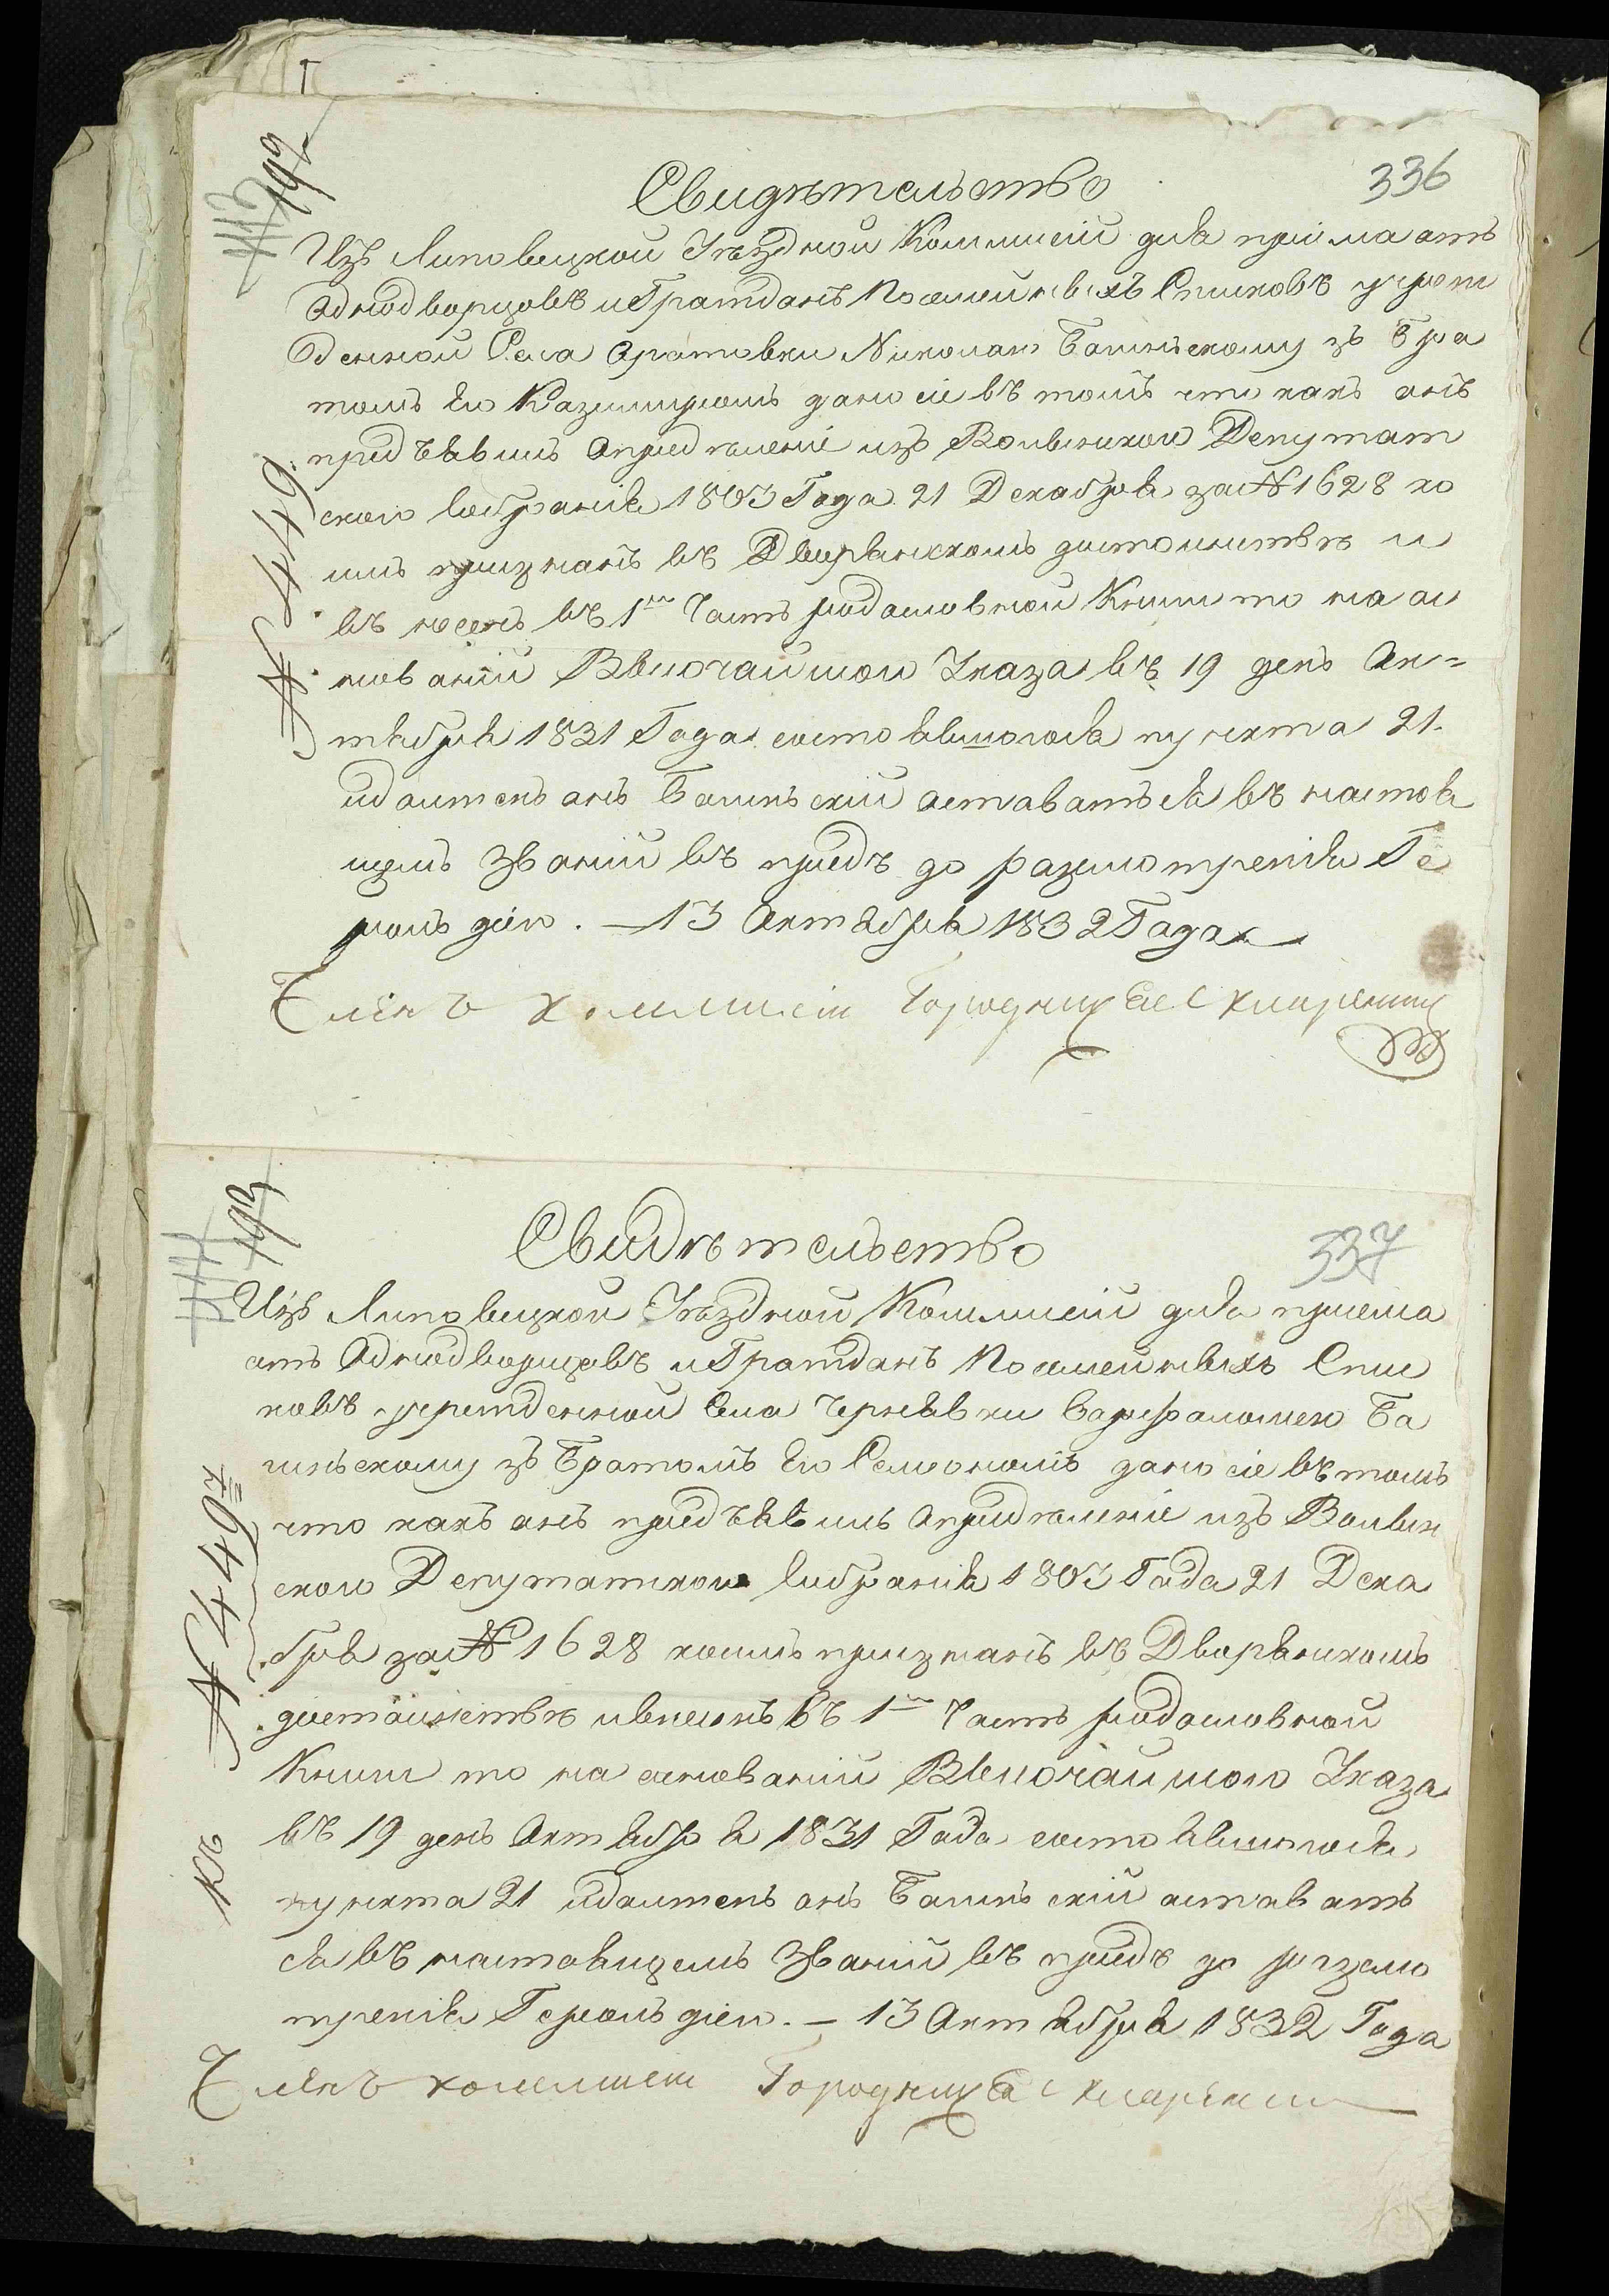 336
192
Свидѣтельство
Изъ Липовецкой Уѣздной Коммисіи для пріима атъ
Аднодворцовъ и Гражданъ Посемейныхъ Списковъ учреж
денной Села Аратовки Николаю Багинъскому зъ Бра
томъ Его Казимиромъ дано сіе въ томъ что какъ анъ
придъявилъ Апредѣленіе изъ Волынского Депутат
ского Собранія 1803 Года 21 Декабря за № 1628 ко
имъ признанъ въ Дворянскомъ достоинствѣ и
въ несенъ въ 1ю Часть родословной Книги то на ас
нованіи Высочайшого Указа въ 19 день Ак=
тября 1831 Года состоявшогося пункта 21.
идолженъ анъ Багинъскій аставатъся въ настоя
щемъ Званіи въ предъ до разсмотренія Ге
рольдіи. — 13 Актября 1832 Года
Членъ коммисіи Городничій
№ 449
337
193
Свидѣтельство
Изъ Липовецкой Уѣздной Коммисіи для приема
атъ Аднодворцовъ и Гражданъ Посемейныхъ Спис
ковъ учрежденной Села Чернявки Варфаломею Ба
гинъскому зъ Братомъ Его Семіономъ дано сіе въ томъ
что какъ анъ предъявилъ Апредѣленіе изъ Волын
ского Депутатского Собранія 1803 Года 21 Дека
бря за № 1628 коимъ признанъ въ Дворянскомъ
достоинствѣ ивнесенъ въ 1ю Часть родословной
Книги то на аснованіи Высочайшого Указа
въ 19 день Актября 1831 Года состоявшогося
пункта 21 идолженъ анъ Багинъскій аставатъ
ся въ настоящемъ Званіи въ предъ до разсмо
тренія Герольдіи. — 13 Актября 1832 Года
Членъ коммисіи Городничій
Къ № 449